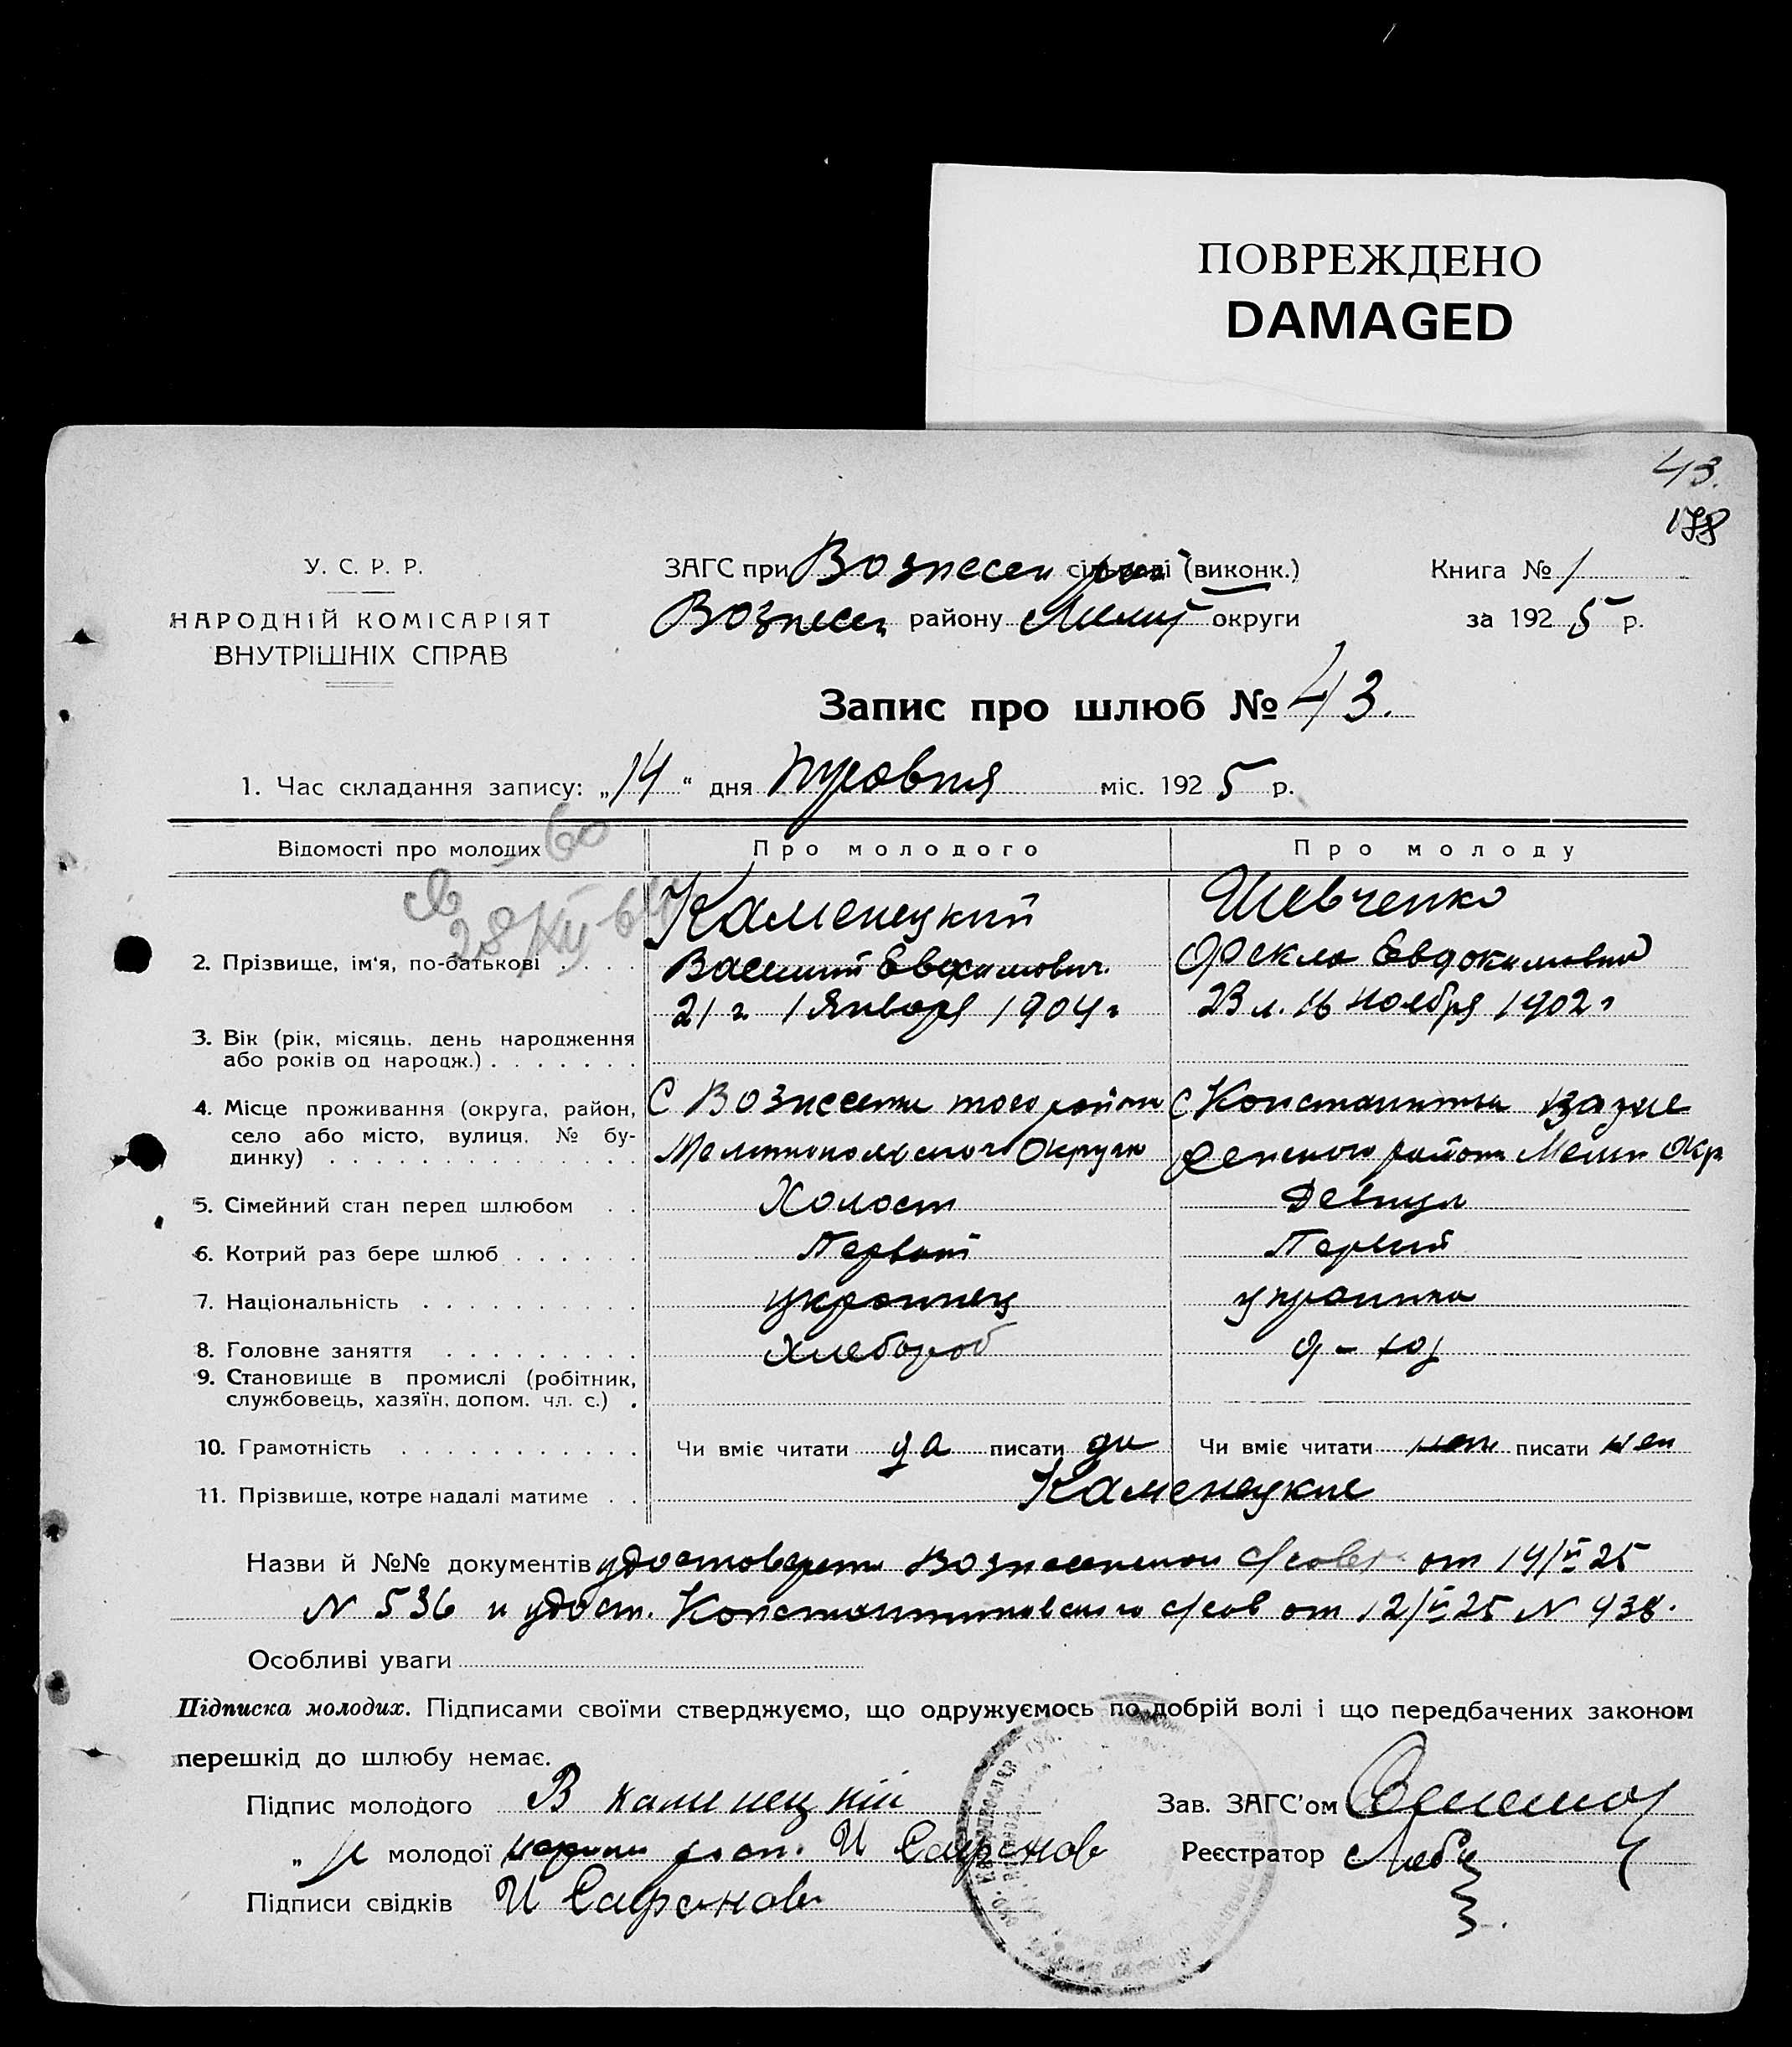 ПОВРЕЖДЕНО
DAMAGED
43.
178
У. С. Р. Р.
НАРОДНІЙ КОМІСАРІЯТ
ВНУТРІШНІХ СПРАВ
ЗАГС при Вознесен сільраді (виконк.)
Вознесен району Мелит округи
Книга № 1
за 1925 р.
Запис про шлюб № 43.
1. Час складання запису: „14“ дня міс. 1925 р.
Відомості про молодих
Про молодого
Про молоду
60
28/XII-64
2. Прізвище, ім'я, по-батькові
Каменецкий
Василий Евдокимович.
Шевченко
Фекла Евдокимовна
3. Вік (рік, місяць, день народження
або років од народж.)
21 г. 1 Января 1904 г
23 л. 16 ноября 1902 г
4. Місце проживання (округа, район,
село або місто, вулиця, № бу-
динку)
С Вознесенка того района
Мелитопольского Округа
С Константиновка Вознe
сенского района Мелит Окр
5. Сімейний стан перед шлюбом
Холост
Девица
6. Котрий раз бере шлюб
Первый
Первый
7. Національність
украинец
украинка
8. Головне заняття
Хлебороб
д-хоз
9. Становище в промислі (робітник,
службовець, хазяїн, допом. чл. с.)
10. Грамотність
Чи вміє читати да писати да
Чи вміє читати нет писати нет
11. Прізвище, котре надалі матиме
Каменецкие
Назви й №№ документів удостоверен Вознесенской с/совет от 14/VI 25
N 536 и удост. Константиновского с/сов от 12/VI 25 N 438.
Особливі уваги
Підписка молодих. Підписами своїми стверджуємо, що одружуємось по добрій волі і що передбачених законом
перешкід до шлюбу немає.
Підпис молодого В каменецкий
Зав. ЗАГС'ом
„ молодої И Сафонов
Реєстратор
Підписи свідків И Сафонов